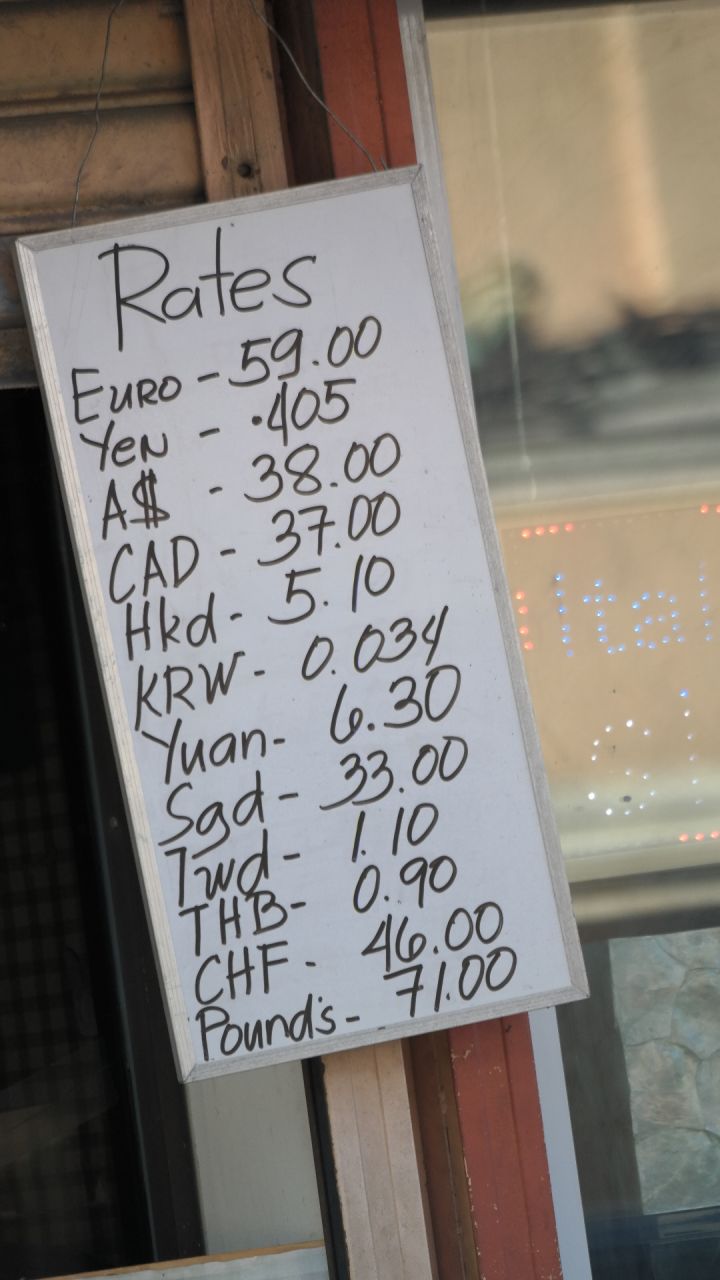 Rates
Euro - 59.00
Yen - .405
A$ - 38.00
CAD - 37.00
Hkd - 5.10
KRW - 0.034
Yuan - 6.30
Sgd - 33.00
Twd - 1.10
THB - 0.90
CHF - 46.00
Pound's - 71.00
ital